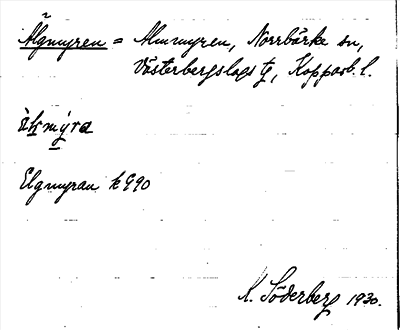 Älgmyren = Almmyren, Norrbärke sn,
Västerbergslags tg, Kopparb. l.
Elgmyran
K. Söderberg 1930.